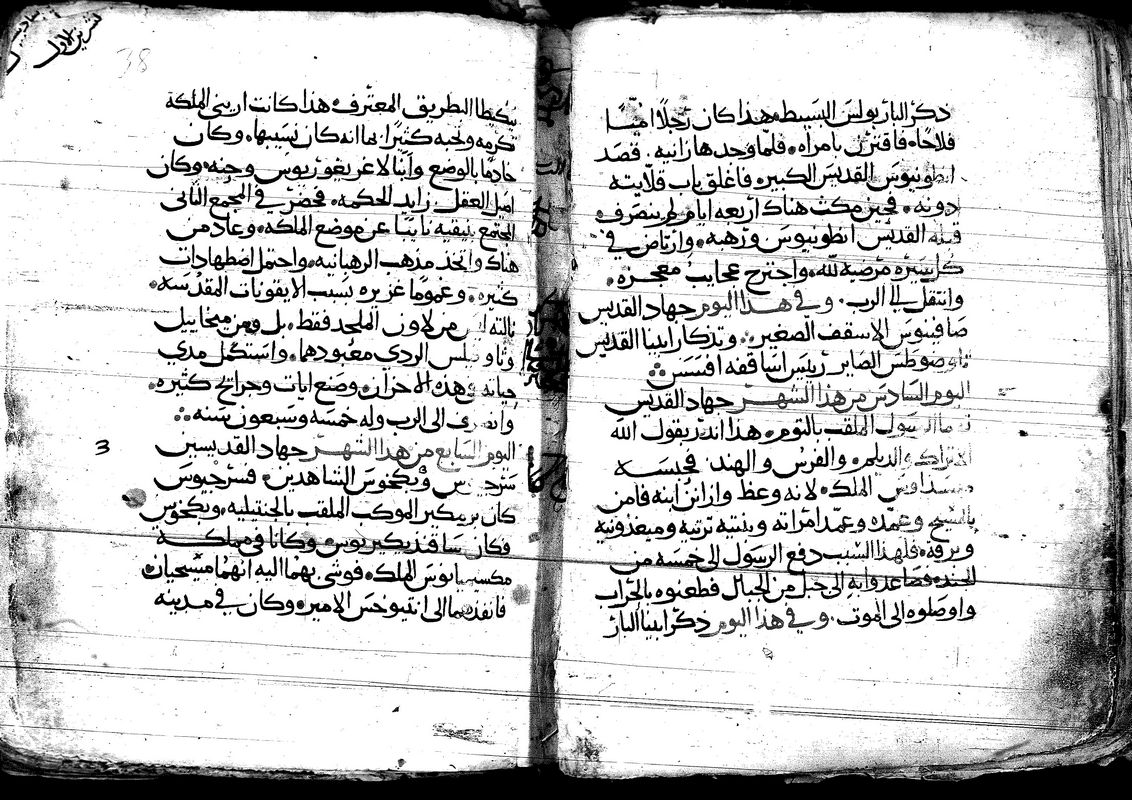 ذكر البار بولس البسيط هذا كان رجلًا اميًا
فلاحًا فاقترن بامراه فلما وجدها زانيه قصد
انطونيوس القديس الكبير فاغلق باب قلايته
دونه فحين مكث هناك اربعه ايام ولم ينصرف
قبله القديس انطونيوس ورهبه وارتاض في
كل سيره مرضيه لله واجترح عجايب معجزه
وانتقل الى الرب وفي هذا اليوم جهاد القديس
الاسقف الصغير وتذكار ابينا القديس
الصابر رييس اساقفه افسس
اليوم السادس من هذا الشهر جهاد القديس
توما الرسول الملقب بالتوم هذا انذر بقول الله
والديلم والفرس والهند فحبسه
الملك لانه وعظ وازانن ابنه فامن
بالمسيح وعمده وعمد امراته وبنته ترتيه وميغدونيه
ونرقه فلهذا السبب دفع الرسول الى خمسه من
الجند فصاعدوا به الى جبل من الجبال فطعنوه بالحراب
واوصلوه الى الموت وفي هذا اليوم ذكر ابينا البار
تشرين الاول
38
نيكيطا البطريق المعترف هذا كانت اريني الملكة
تكرمه وتحبه كثيرًا بما انه كان نسيبها وكان
خادمًا بالوضع وابنًا لاغريغوريوس وحنه وكان
اصيل العقل زايد الحكمه فحضر في المجمع الثاني
المجتمع بنيقيه نايبًا عن موضع الملكه وعاد من
هناك واتخذ مذهب الرهبانيه واحتمل اضطهادات
كثيره وغمومًا غزيره بسبب الايقونات المقدسه
من لاون الملحد فقط بل ومن ميخاييل
وثاوفيلس الردي معبودهما واستكمل مدي
حياته وهذه الاحزان وصنع ايات وجرايح كثيره
وانصرف الى الرب وله خمسه وسبعون سنه
3
اليوم السابع من هذا الشهر جهاد القديسين
سرجيوس وبكخوس الشاهدين فسرجيوس
كان بريميكير الموكب الملقب بالجنتيليه وبكخوس
فكان سافنذيكيريوس وكانا في مملكة
مكسيميانوس الملك فوشى بهما اليه انهما مسيحيان
فانفذهما الى انتيوخس الامير وكان في مدينه